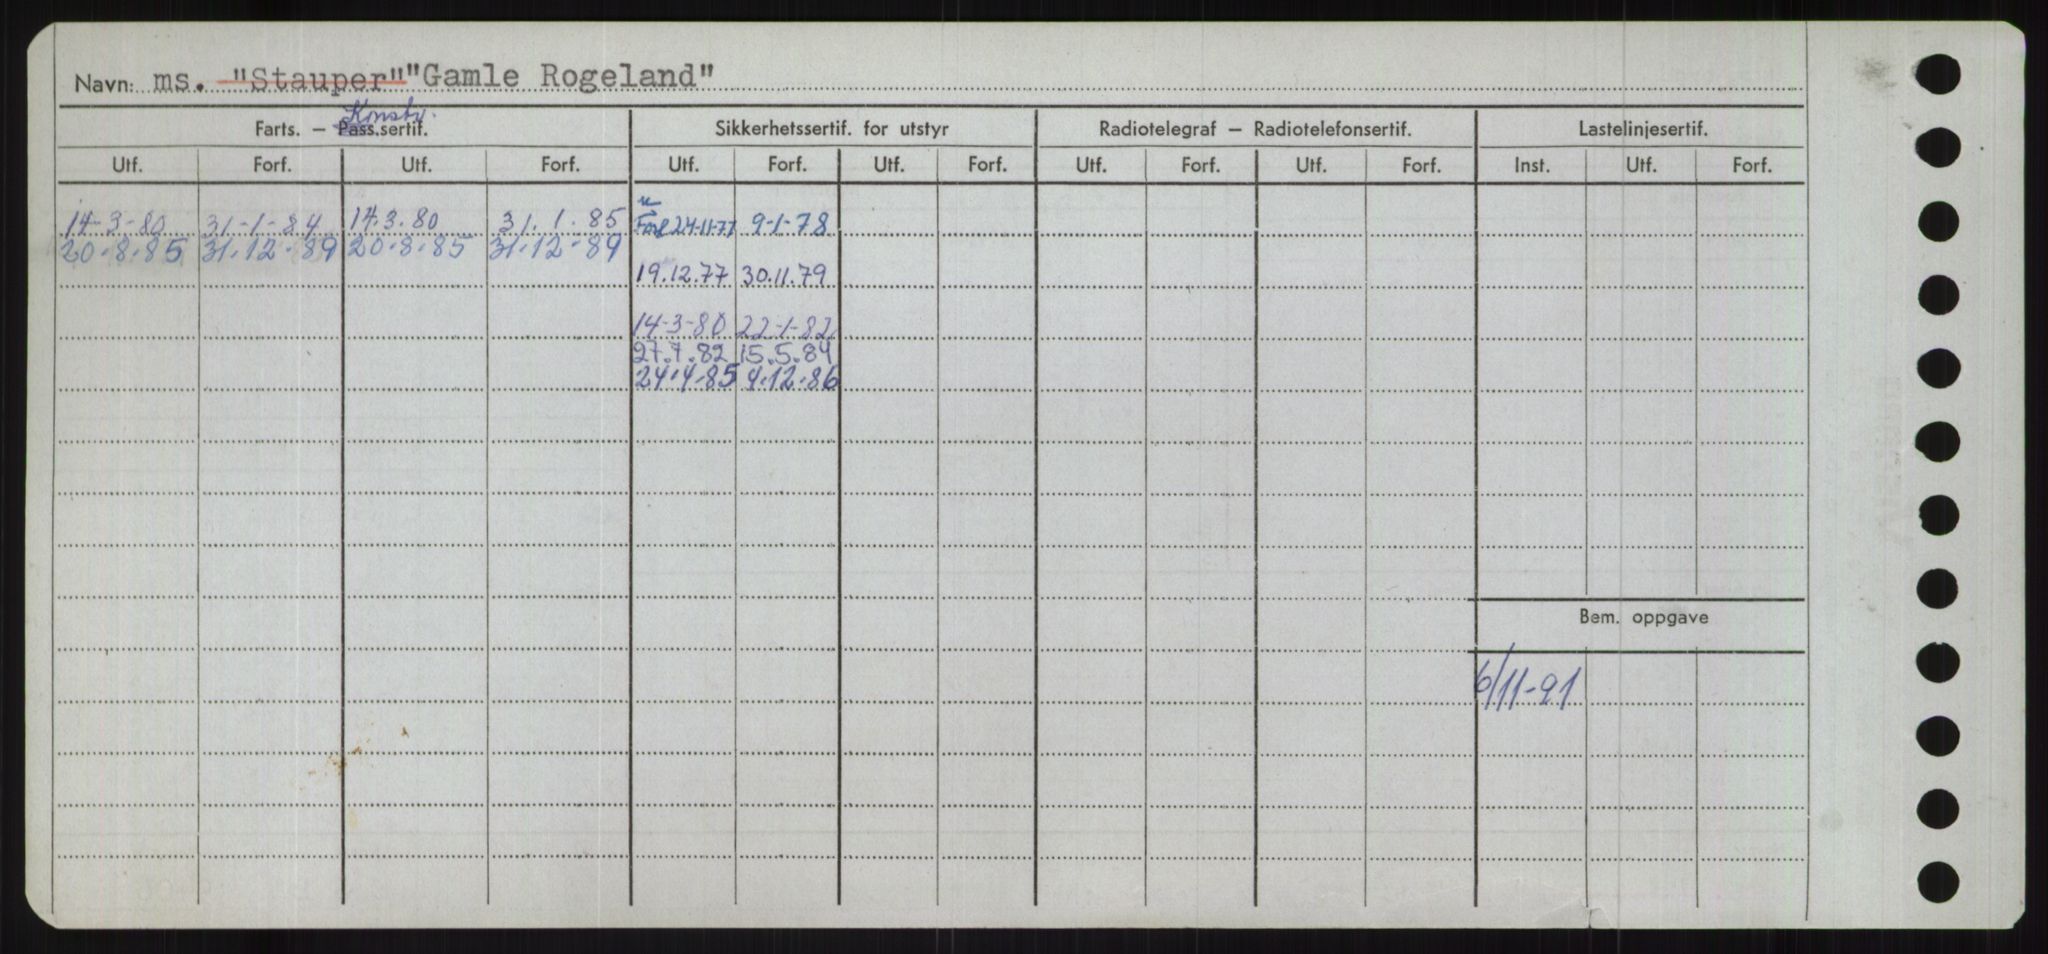 Navn: ms. "Stauper" "Gamle Rogeland"
Konstr.
Farts. — Pass.sertif. Sikkerhetssertif. for utstyr Radiotelegraf — Radiotelefonsertif. Lastelinjesertif.
Utf. Forf. Utf. Forf. Utf. Forf. Utf. Forf. Utf. Forf. Utf. Forf. Inst. Utf. Forf.
14-3-80 31-1-84 14.3.80 31.1.85 Forl 24-11-77 9-1-78
20-8-85 31.12.89 20-8-85 31.12-89
19.12.77 30.11.79
14-3-80 22-1-82
27.7.82 15.5.84
24.4.85 4.12.86
Bem. oppgave
6/11-91